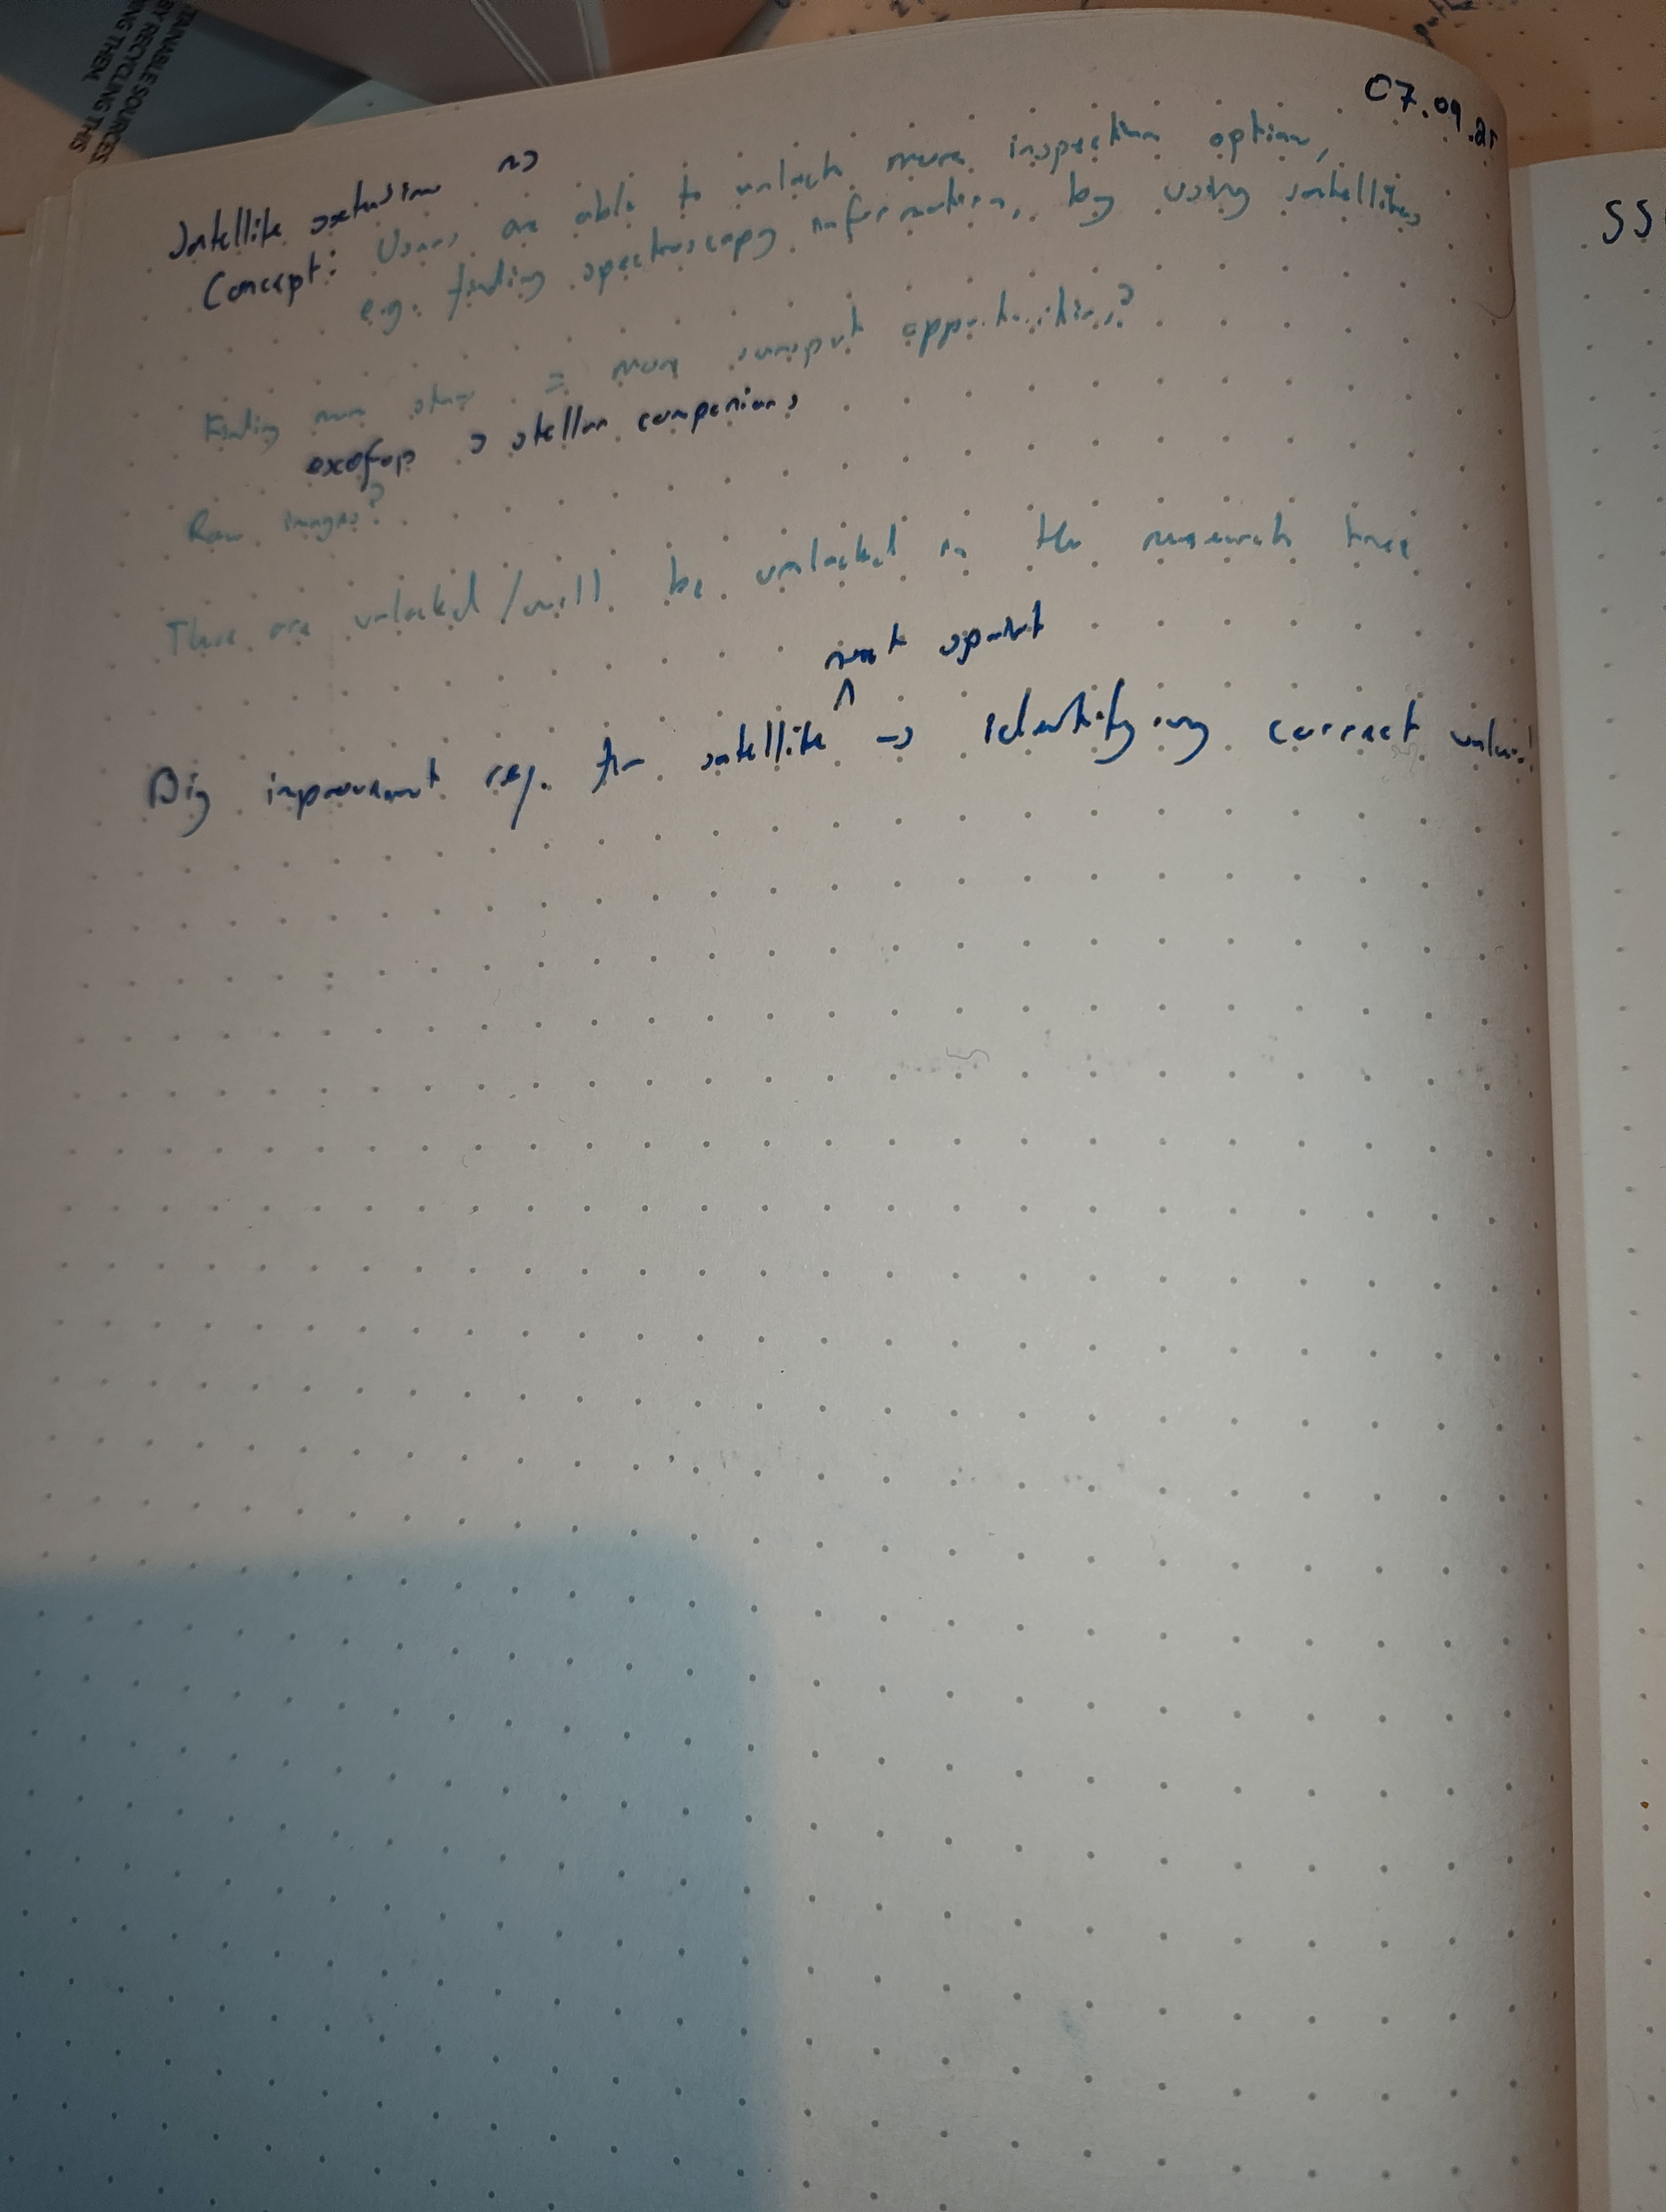 TAINABLE SOURCES.
BY RECYCLING THIS
ING THEM.
07.09.25
Satellite extension →
Concept: Users are able to unlock more inspection options,
e.g. finding spectroscopy information, by using satellites
Finding more stars = more sunspot opportunities?
exofop → stellar companions
Raw images?
These are unlocked/will be unlocked in the research tree
next sprint
Big improvement req. for satellite ^ → identifying correct values!
SS